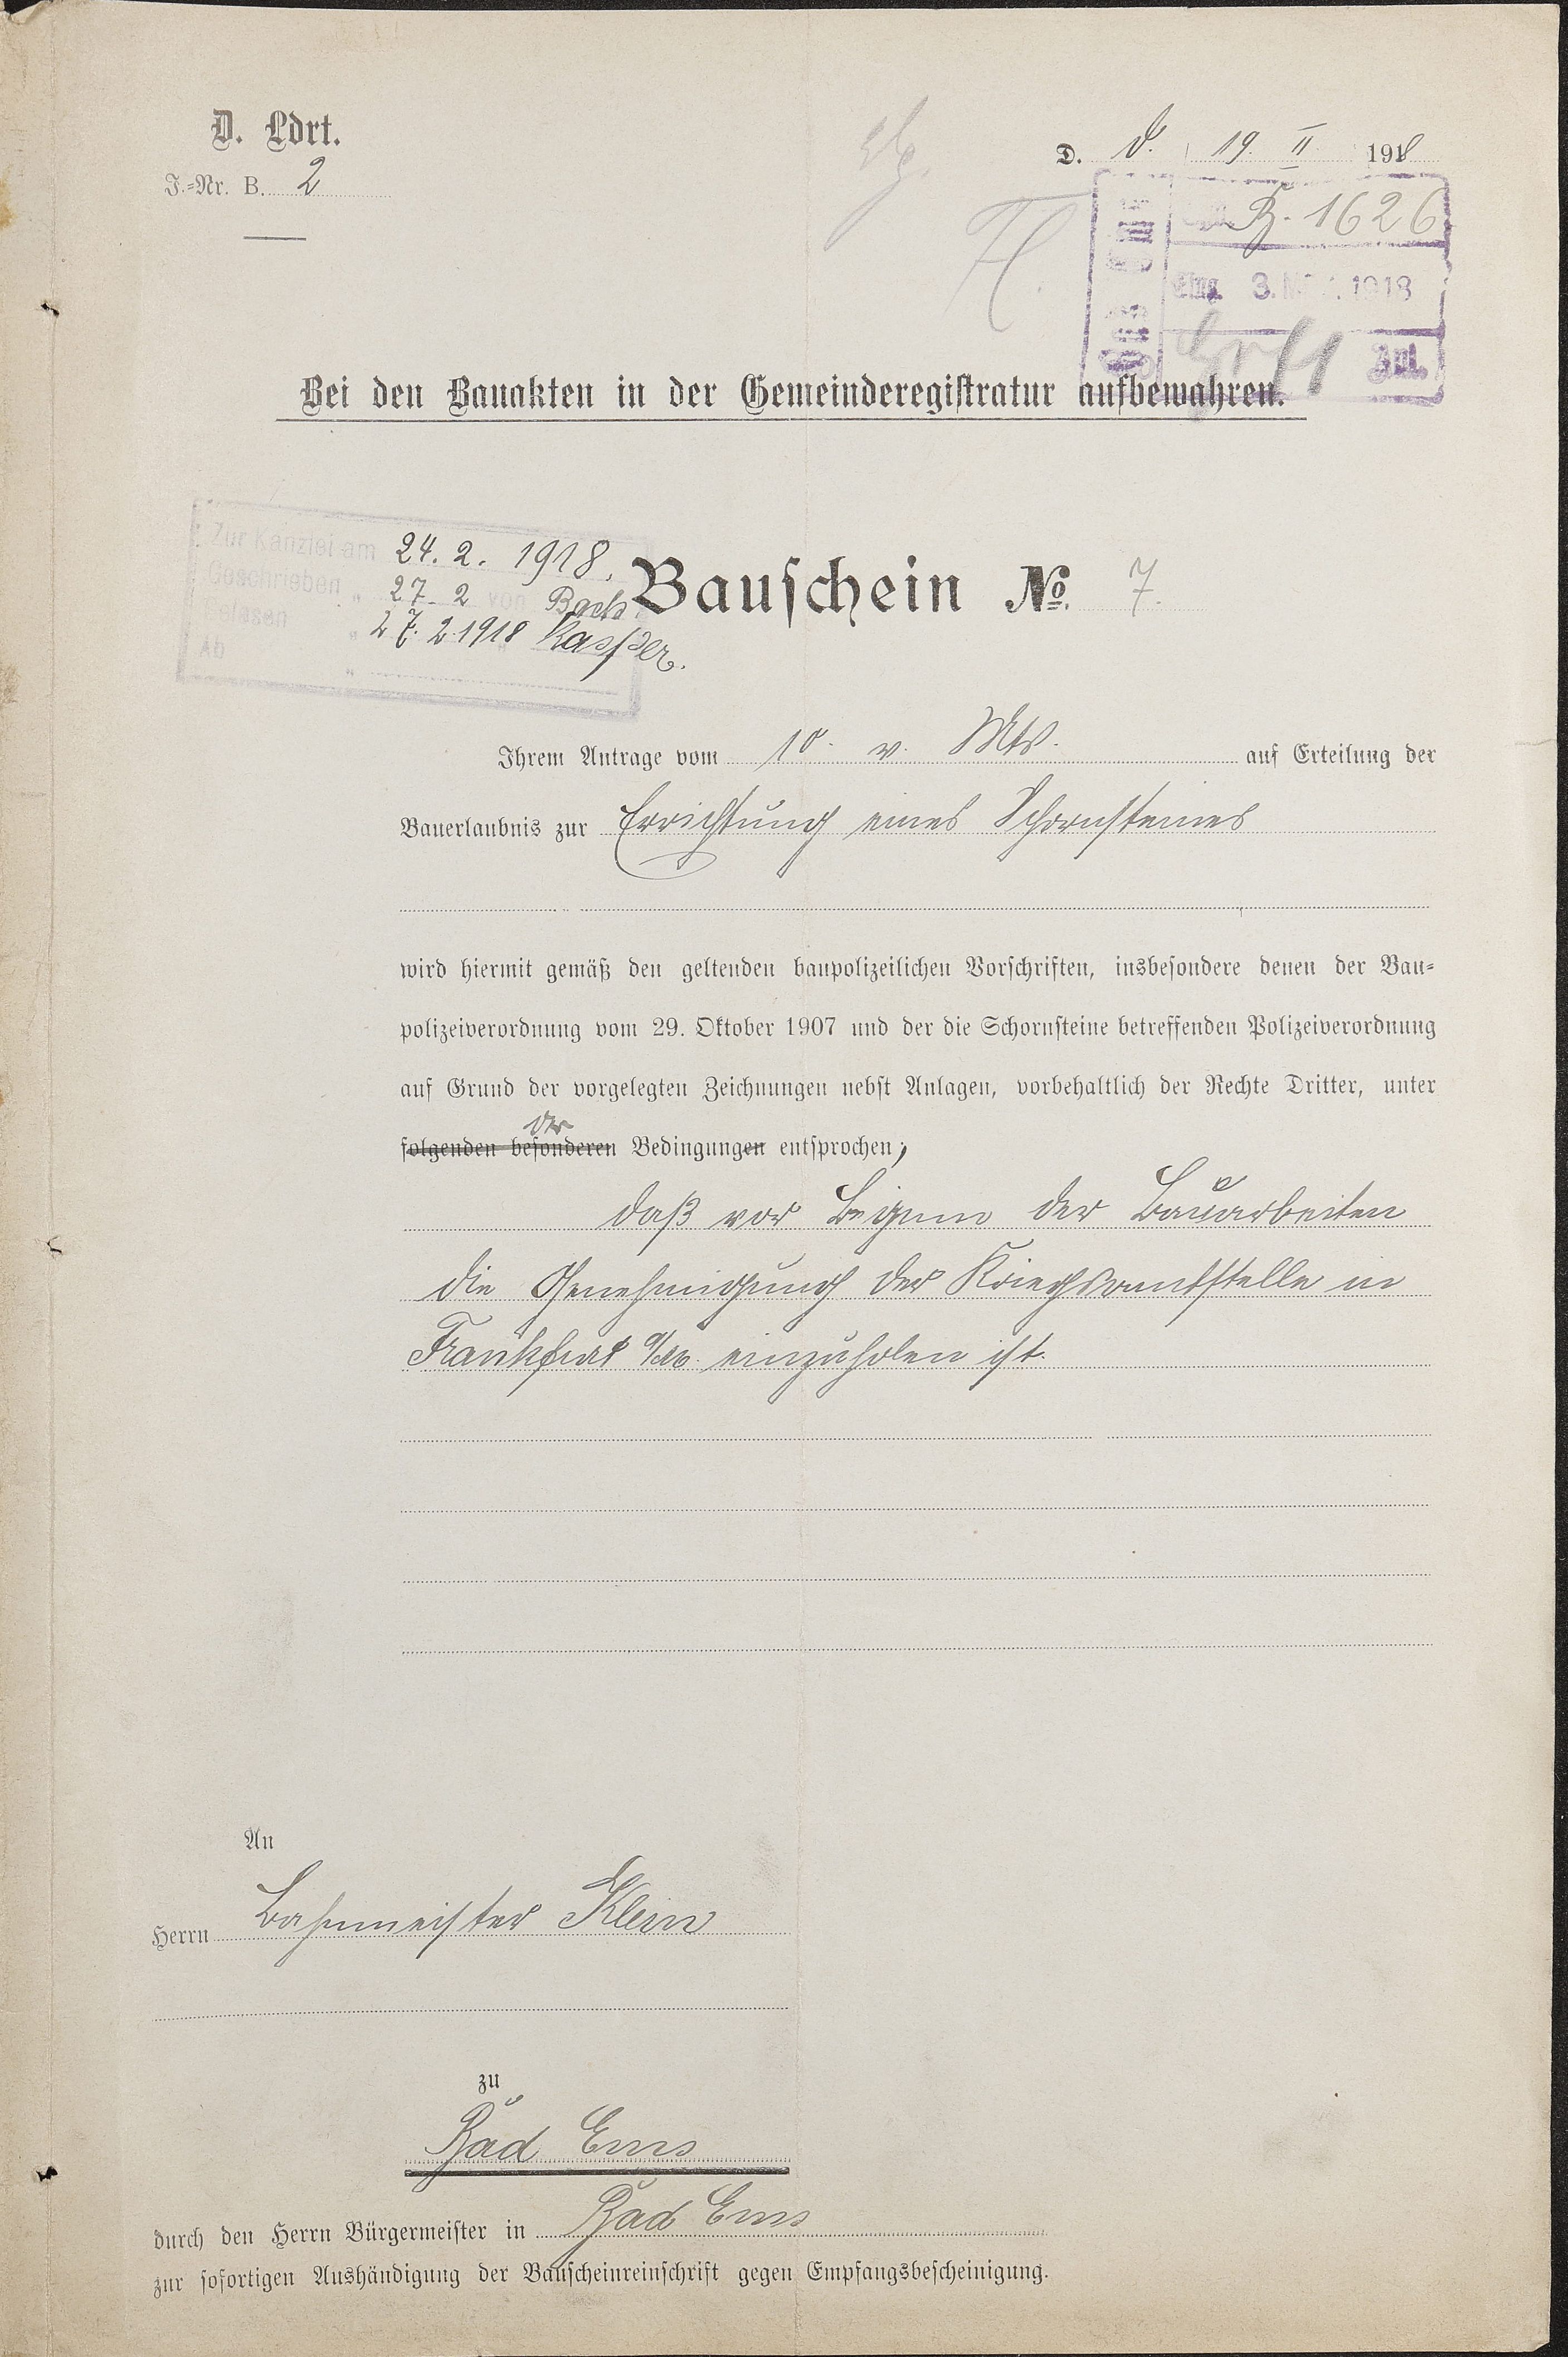 D. Ldrt.
J.=Nr. B. 2
D. D. 19. II. 1918
B. 1626
Eing. 3. 1918
Anl.
Bei den Bauakten in der Gemeinderegistratur aufbewahren.
Zur Kanzlei am 24. 2. 1918.
Geschrieben „ 27. 2 von Bach
Gelesen „ 27. 2. 1918 Kasper.
Ab „
Bauschein No. 7.
Ihrem Antrage vom 10. v. Mts. auf Erteilung der
Bauerlaubnis zur Errichtung eines Schornsteines
wird hiermit gemäß den geltenden baupolizeilichen Vorschriften, insbesondere denen der Bau=
polizeiverordnung vom 29. Oktober 1907 und der die Schornsteine betreffenden Polizeiverordnung
auf Grund der vorgelegten Zeichnungen nebst Anlagen, vorbehaltlich der Rechte Dritter, unter
der
folgenden besonderen Bedingungen entsprochen,
daß vor Beginn der Bauarbeiten
die Genehmigung der Kriegsamtstelle in
Frankfurt a/M. einzuholen ist.
An
Herrn Bahnmeister Klein
zu
Bad Ems
durch den Herrn Bürgermeister in Bad Ems
zur sofortigen Aushändigung der Bauscheinreinschrift gegen Empfangsbescheinigung.